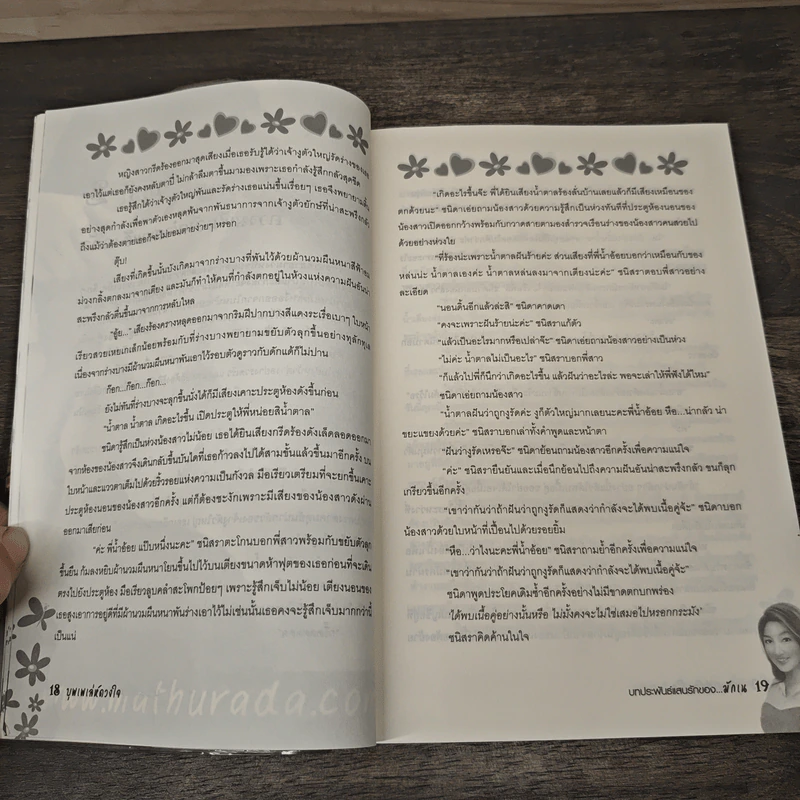 หญิงสาวกรีดร้องออกมาสุดเสียงเมื่อเธอรับรู้ได้ว่าเจ้างูตัวใหญ่รัดร่างของเธอ
เอาไว้แต่เธอก็ยังคงหลับตาปี๋ ไม่กล้าลืมตาขึ้นมามองเพราะเธอกำลังรู้สึกกลัวสุดขีด
เธอรู้สึกได้ว่าเจ้างูตัวใหญ่พันและรัดร่างเธอแน่นขึ้นเรื่อยๆ เธอจึงพยายามดิ้น
อย่างสุดกำลังเพื่อพาตัวเองหลุดพ้นจากพันธนาการจากเจ้างูตัวยักษ์ที่น่าสะพรึงกลัว
ถึงแม้ว่าต้องตายเธอก็จะไม่ยอมตายง่ายๆ หรอก
ตุ้บ!
เสียงที่เกิดขึ้นนั้นบังเกิดมาจากร่างบางที่พันไว้ด้วยผ้านวมผืนหนาสีฟ้าอม
ม่วงกลิ้งตกลงมาจากเตียง และมันก็ทำให้คนที่กำลังตกอยู่ในห้วงแห่งความฝันอันน่า
สะพรึงกลัวตื่นขึ้นมาจากการหลับใหล
“อู้ย...” เสียงร้องครางหลุดออกมาจากริมฝีปากบางสีแดงระเรื่อเบาๆ ใบหน้า
เรียวสวยเหยเกเล็กน้อยพร้อมกับที่ร่างบางพยายามขยับตัวลุกขึ้นอย่างทุลักทุเล
เนื่องจากร่างบางมีผ้านวมผืนหนาพันเอาไว้รอบตัวดูราวกับดักแด้ก็ไม่ปาน
ก๊อก...ก๊อก...ก๊อก...
ยังไม่ทันที่ร่างบางจะลุกขึ้นนั่งได้ก็มีเสียงเคาะประตูห้องดังขึ้นก่อน
“น้ำตาล น้ำตาล เกิดอะไรขึ้น เปิดประตูให้พี่หน่อยสิน้ำตาล”
ชนิดารู้สึกเป็นห่วงน้องสาวไม่น้อย เธอได้ยินเสียงกรีดร้องดังเล็ดลอดออกมา
จากห้องของน้องสาวจึงเดินกลับขึ้นบันไดที่เธอก้าวลงไปได้สามขั้นแล้วขึ้นมาอีกครั้ง บน
ใบหน้าและแววตาเต็มไปด้วยริ้วรอยแห่งความเป็นกังวล มือเรียวเตรียมที่จะยกขึ้นเคาะ
ประตูห้องนอนของน้องสาวอีกครั้ง แต่ก็ต้องชะงักเพราะมีเสียงของน้องสาวดังผ่าน
ออกมาเสียก่อน
“ค่ะ พี่น้ำอ้อย แป๊บหนึ่งนะคะ” ชนิสราตะโกนบอกพี่สาวพร้อมกับขยับตัวลุก
ขึ้นยืน ก้มลงหยิบผ้านวมผืนหนาโยนขึ้นไปไว้บนเตียงขนาดห้าฟุตของเธอก่อนที่จะเดิน
ตรงไปยังประตูห้อง มือเรียวลูบคลำสะโพกป้อยๆ เพราะรู้สึกเจ็บไม่น้อย เตียงนอนของ
เธอสูงเอาการอยู่ดีที่มีผ้านวมผืนหนาพันร่างเอาไว้ไม่เช่นนั้นเธอคงจะรู้สึกเจ็บมากกว่านี้
เป็นแน่
18 บุพเพเล่ห์ดวงใจ
www.mathurada.com
“เกิดอะไรขึ้นจ๊ะ พี่ได้ยินเสียงน้ำตาลร้องลั่นบ้านเลยแล้วก็มีเสียงเหมือนของ
ตกด้วยนะ” ชนิดาเอ่ยถามน้องสาวด้วยความรู้สึกเป็นห่วงทันทีที่ประตูห้องนอนของ
น้องสาวเปิดออกกว้างพร้อมกับกวาดสายตามองสำรวจเรือนร่างของน้องสาวคนสวยไป
ด้วยอย่างห่วงใย
“ที่ร้องน่ะเพราะน้ำตาลฝันร้ายค่ะ ส่วนเสียงที่พี่น้ำอ้อยบอกว่าเหมือนกับของ
หล่นน่ะ น้ำตาลเองค่ะ น้ำตาลหล่นลงมาจากเตียงน่ะค่ะ” ชนิสราตอบพี่สาวอย่าง
ละเอียด
“นอนดิ้นอีกแล้วล่ะสิ” ชนิดาคาดเดา
“คงจะเพราะฝันร้ายน่ะค่ะ” ชนิสราแก้ตัว
“แล้วเป็นอะไรมากหรือเปล่าจ๊ะ” ชนิดาเอ่ยถามน้องสาวอย่างเป็นห่วง
“ไม่ค่ะ น้ำตาลไม่เป็นอะไร” ชนิสราบอกพี่สาว
“ก็แล้วไปพี่ก็นึกว่าเกิดอะไรขึ้น แล้วฝันว่าอะไรล่ะ พอจะเล่าให้พี่ฟังได้ไหม”
ชนิดาเอ่ยถามน้องสาว
“น้ำตาลฝันว่าถูกงูรัดค่ะ งูก็ตัวใหญ่มากเลยนะคะพี่น้ำอ้อย หือ...น่ากลัว น่า
ขยะแขยงด้วยค่ะ” ชนิสราบอกเล่าทั้งคำพูดและหน้าตา
“ฝันว่างูรัดเหรอจ๊ะ” ชนิดาย้อนถามน้องสาวอีกครั้งเพื่อความแน่ใจ
“ค่ะ” ชนิสรายืนยันและเมื่อนึกย้อนไปถึงความฝันอันน่าสะพรึงกลัว ขนก็ลุก
เกรียวขึ้นอีกครั้ง
“เขาว่ากันว่าถ้าฝันว่าถูกงูรัดก็แสดงว่ากำลังจะได้พบเนื้อคู่จ้ะ” ชนิดาบอก
น้องสาวด้วยใบหน้าที่เปื้อนไปด้วยรอยยิ้ม
“หือ...ว่าไงนะคะพี่น้ำอ้อย” ชนิสราถามย้ำอีกครั้งเพื่อความแน่ใจ
“เขาว่ากันว่าถ้าฝันว่าถูกงูรัดก็แสดงว่ากำลังจะได้พบเนื้อคู่จ้ะ”
ชนิดาพูดประโยคเดิมซ้ำอีกครั้งอย่างไม่มีขาดตกบกพร่อง
‘ได้พบเนื้อคู่อย่างนั้นหรือ ไม่มั้งคงจะไม่ใช่เสมอไปหรอกกระมัง’
ชนิสราคิดค้านในใจ
บทประพันธ์แสนรักของ...มักเน 19